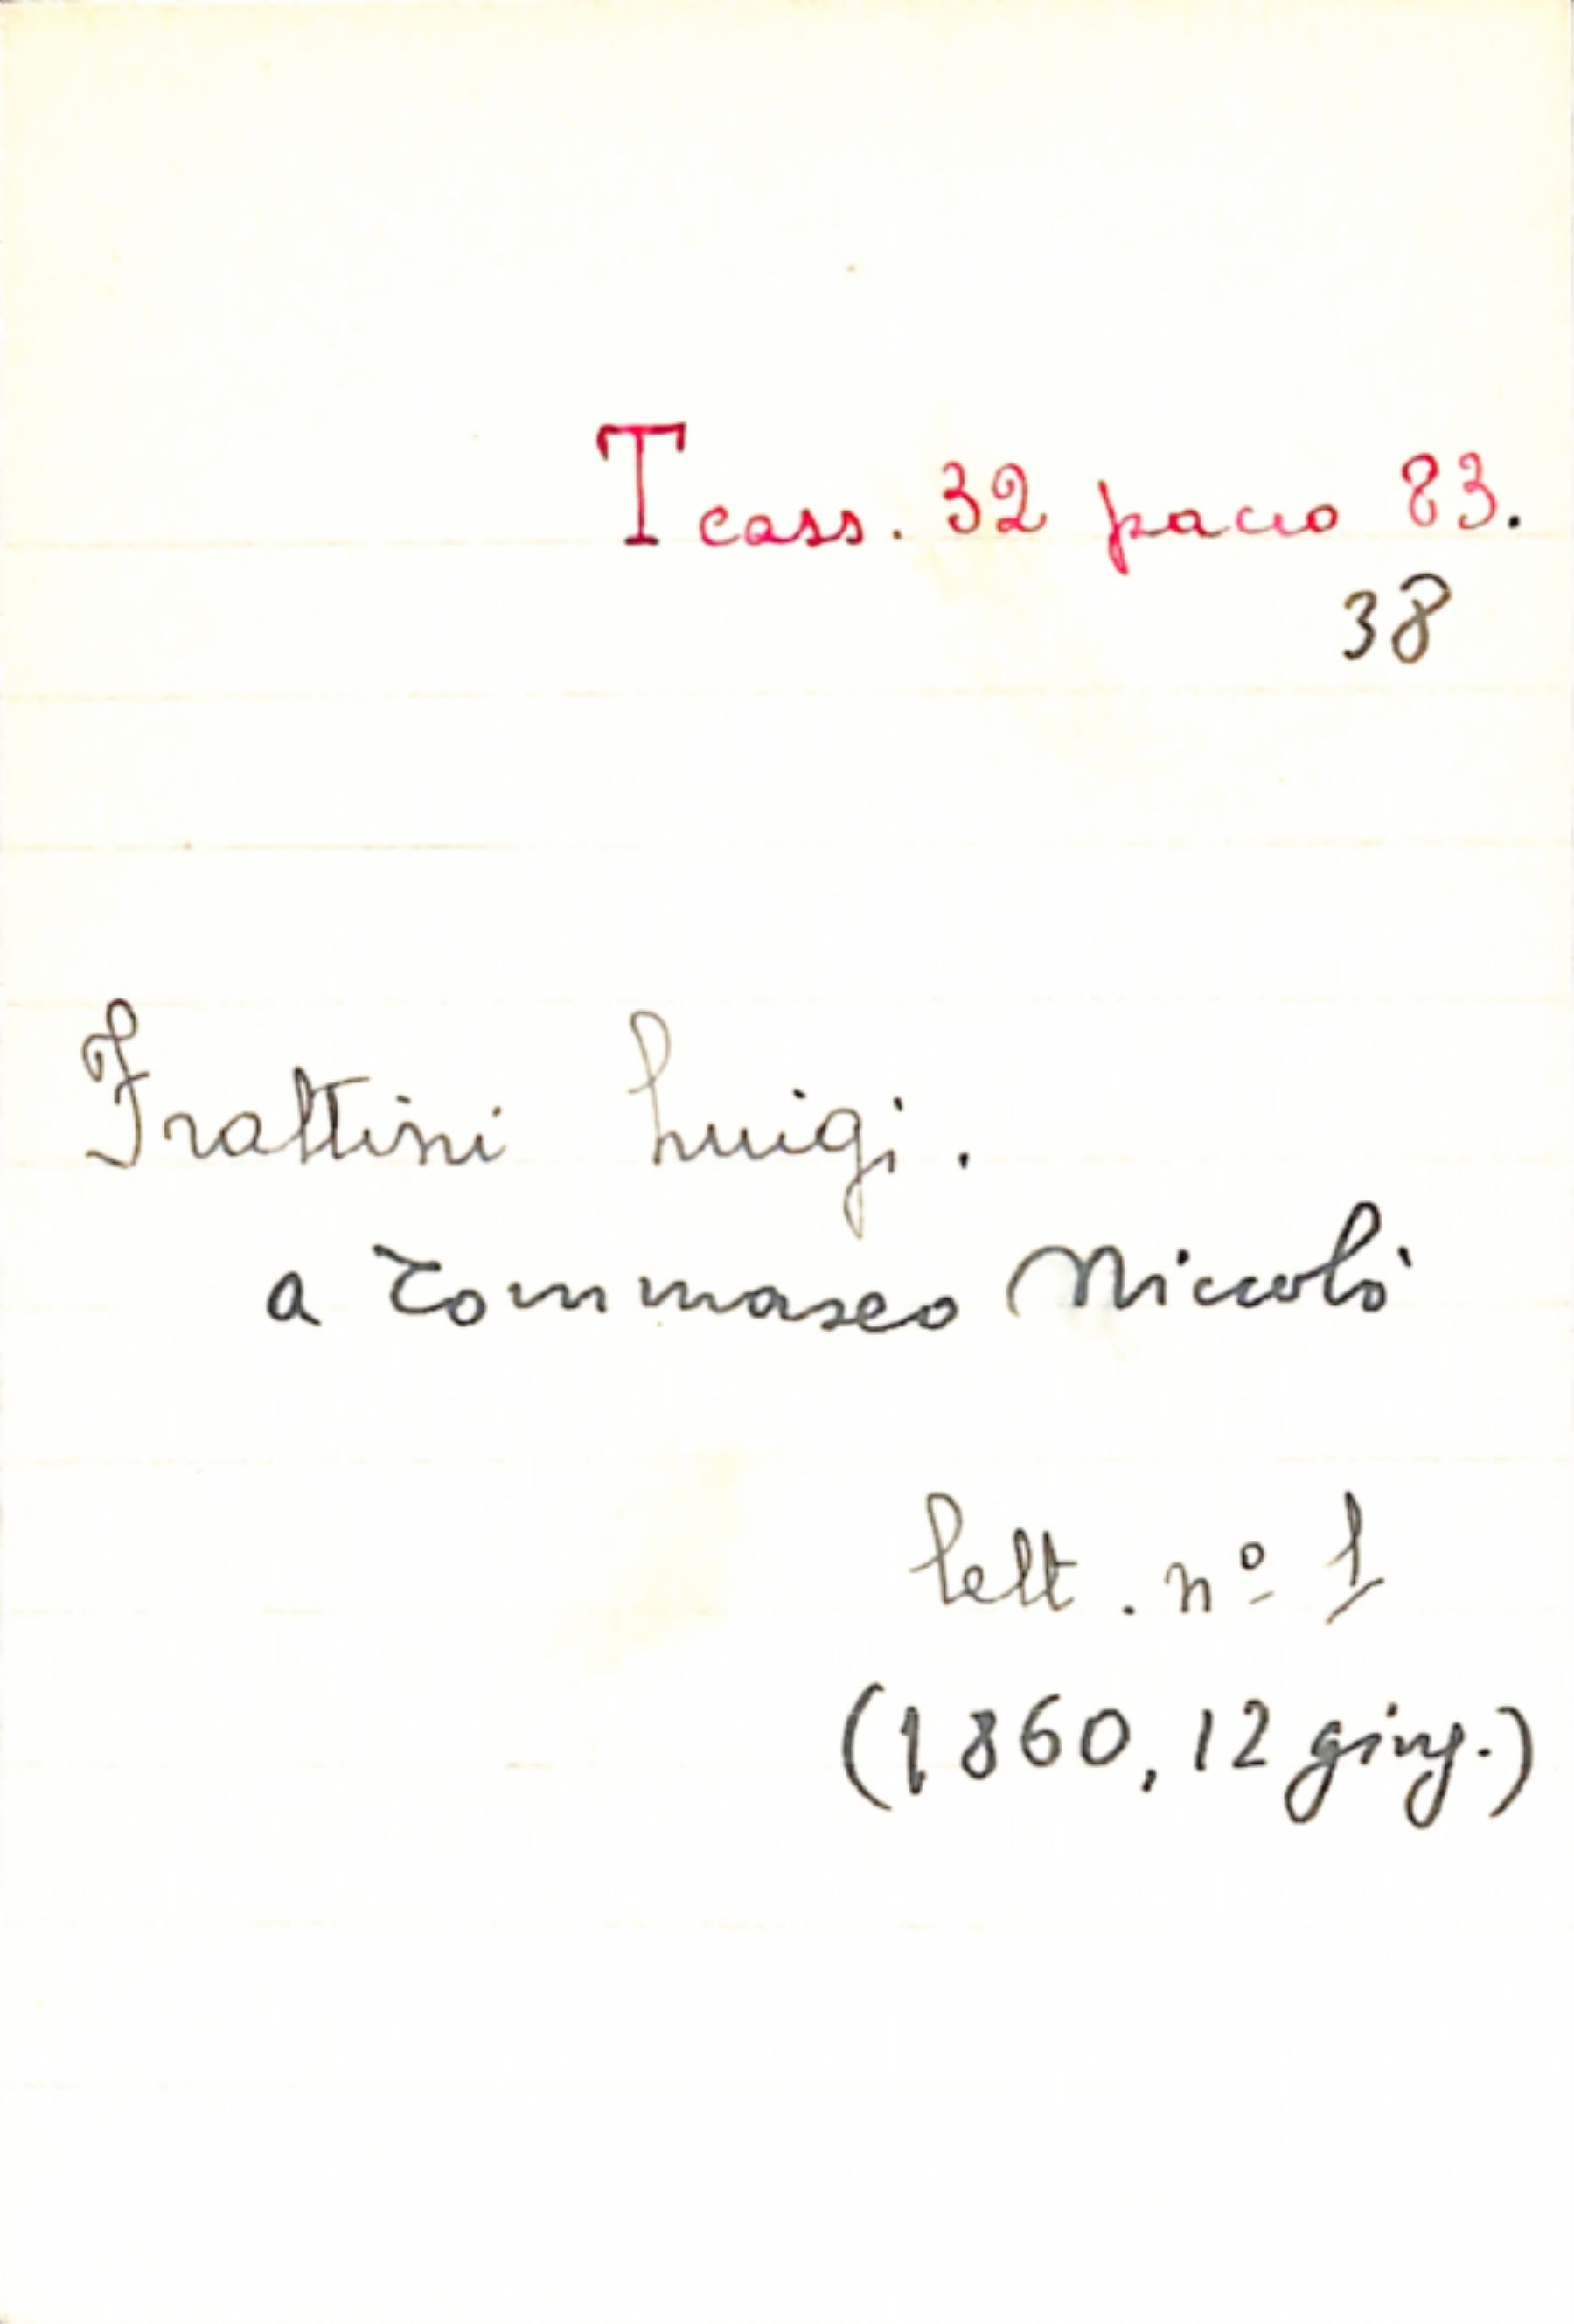 T cass. 32 pacco 83.
38
Frattini Luigi.
a Tommaseo Niccolò
lett. nº 1
(1860, 12 giug.)